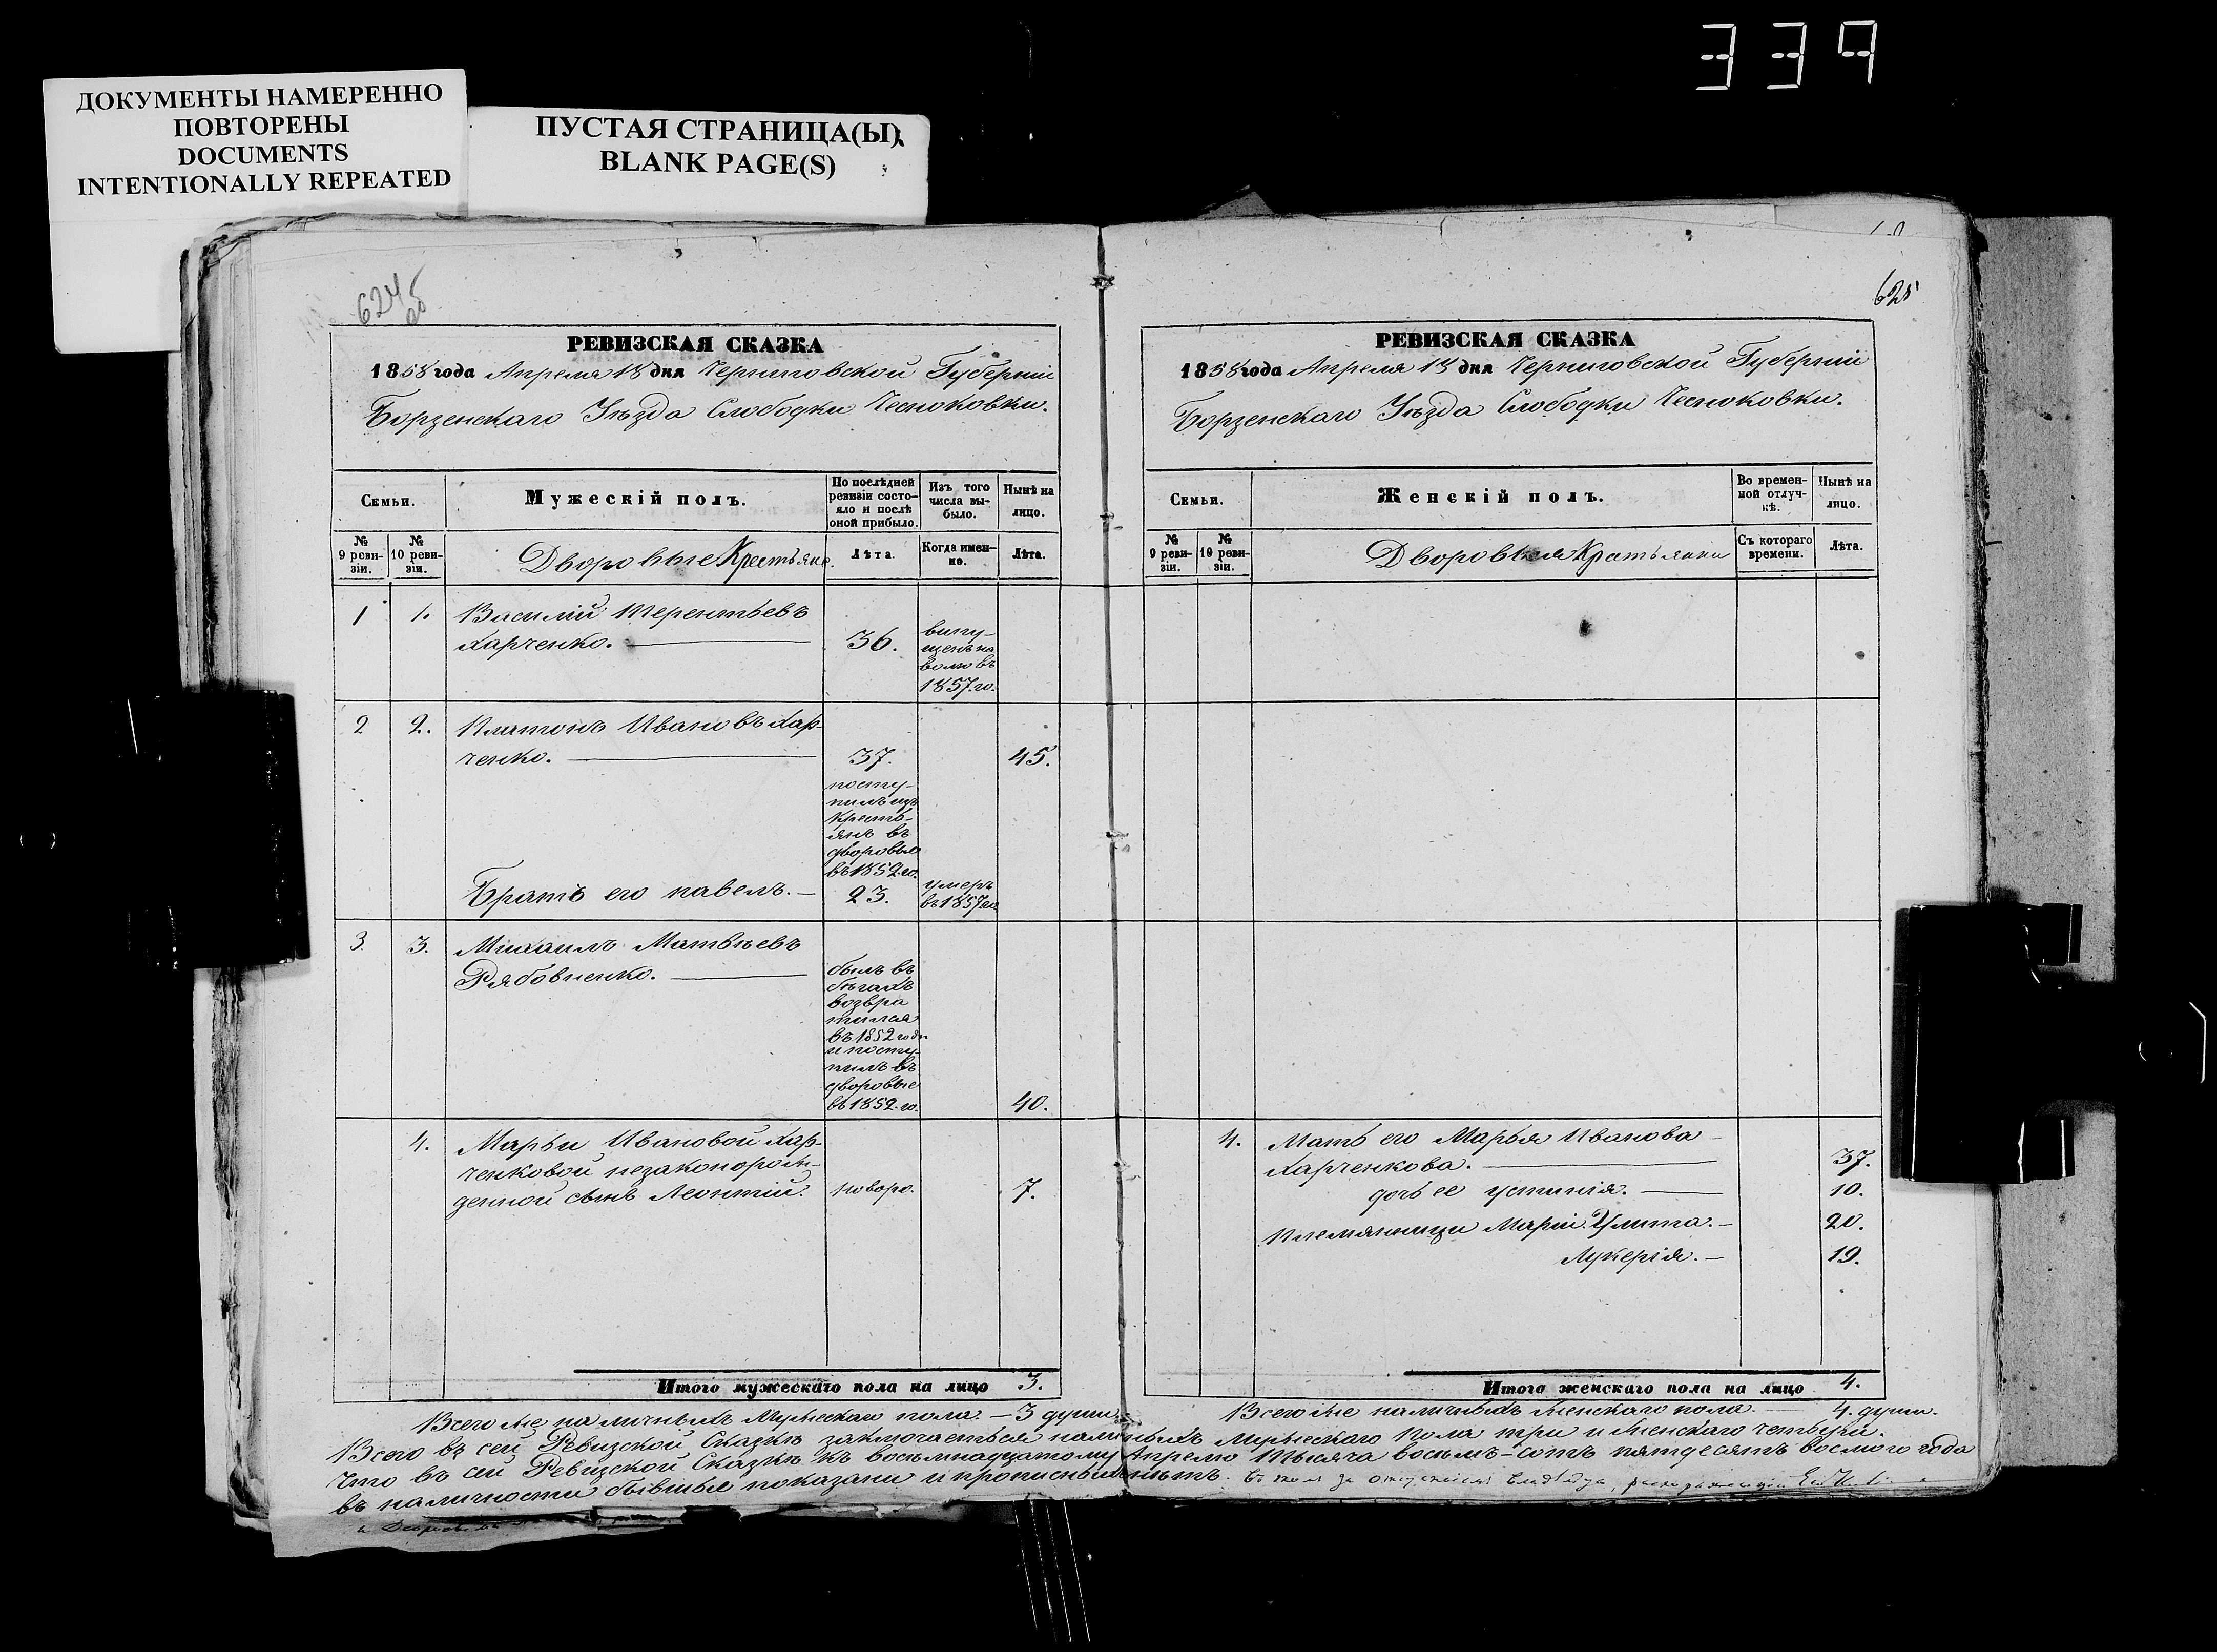 339
ДОКУМЕНТЫ НАМЕРЕННО
ПОВТОРЕНЫ
DOCUMENTS
INTENTIONALLY REPEATED
ПУСТАЯ СТРАНИЦА(Ы)
BLANK PAGE(S)
624 об
РЕВИЗСКАЯ СКАЗКА
1858 года Апреля 18 дня Черниговской Губерніи
Борзенскаго Уѣзда Слободки Чесноковки.
Семьи.
Мужескій полъ.
По послѣдней
ревизіи состо-
яло и послѣ
оной прибыло.
Изъ того
числа вы-
было.
Нынѣ на
лицо.
№
9 реви-
зіи.
№
10 реви-
зіи.
Дворовые Крестьяне.
Лѣта.
Когда имен-
но.
Лѣта.
1 1. Василий Терентьевъ
Харченко. 36.
випу-
щенъ на
волю въ
1857.го.
2 2. Платонъ Ивановъ Хар-
ченко. 37. 45.
посту-
пилъ изъ
кресть-
янъ въ
дворовые
въ 1852.го.
Братъ его павелъ. 23.
умеръ
въ 1857
3. 3. Михаилъ Матвѣевъ
Рябовиенко.
былъ въ
бѣгахъ
возвра
тился
въ 1852 году
и посту-
пилъ въ
дворовые
въ 1852.го. 40.
4. Марьи Ивановой Хар-
ченковой незаконорож-
денной сынъ Леонтій. новоро. 7.
Итого мужескаго пола на лицо 3.
625
РЕВИЗСКАЯ СКАЗКА
1858 года Апреля 18 дня Черниговской Губерніи
Борзенскаго Уѣзда Слободки Чесноковки.
Семьи.
Женскій полъ.
Во времен-
ной отлуч-
кѣ.
Нынѣ на
лицо.
№
9 реви-
зіи.
№
10 реви-
зіи.
Дворовыя Крестьянки
Съ котораго
времени.
Лѣта.
4. Мать его Марья Иванова
Харченкова. 37.
дочь ее устинія. 10.
Племяници Маріи Улита. 20.
Лукерія. 19.
Итого женскаго пола на лицо 4.
Всего же наличныхъ Мужескаго пола. — 3 души.
Всего же наличныхъ женскаго пола. — 4. души.
Всего въ сей Ревизской Сказкѣ заключается наличныхъ Мужескаго пола три и женскаго четыри.
Что въ сей Ревизской Сказкѣ къ восемнадцатому Апрелю тысяча восемь-сотъ пятдесятъ восмого года
въ наличности бывшые показани и прописныхъ нѣтъ. за владѣльца,